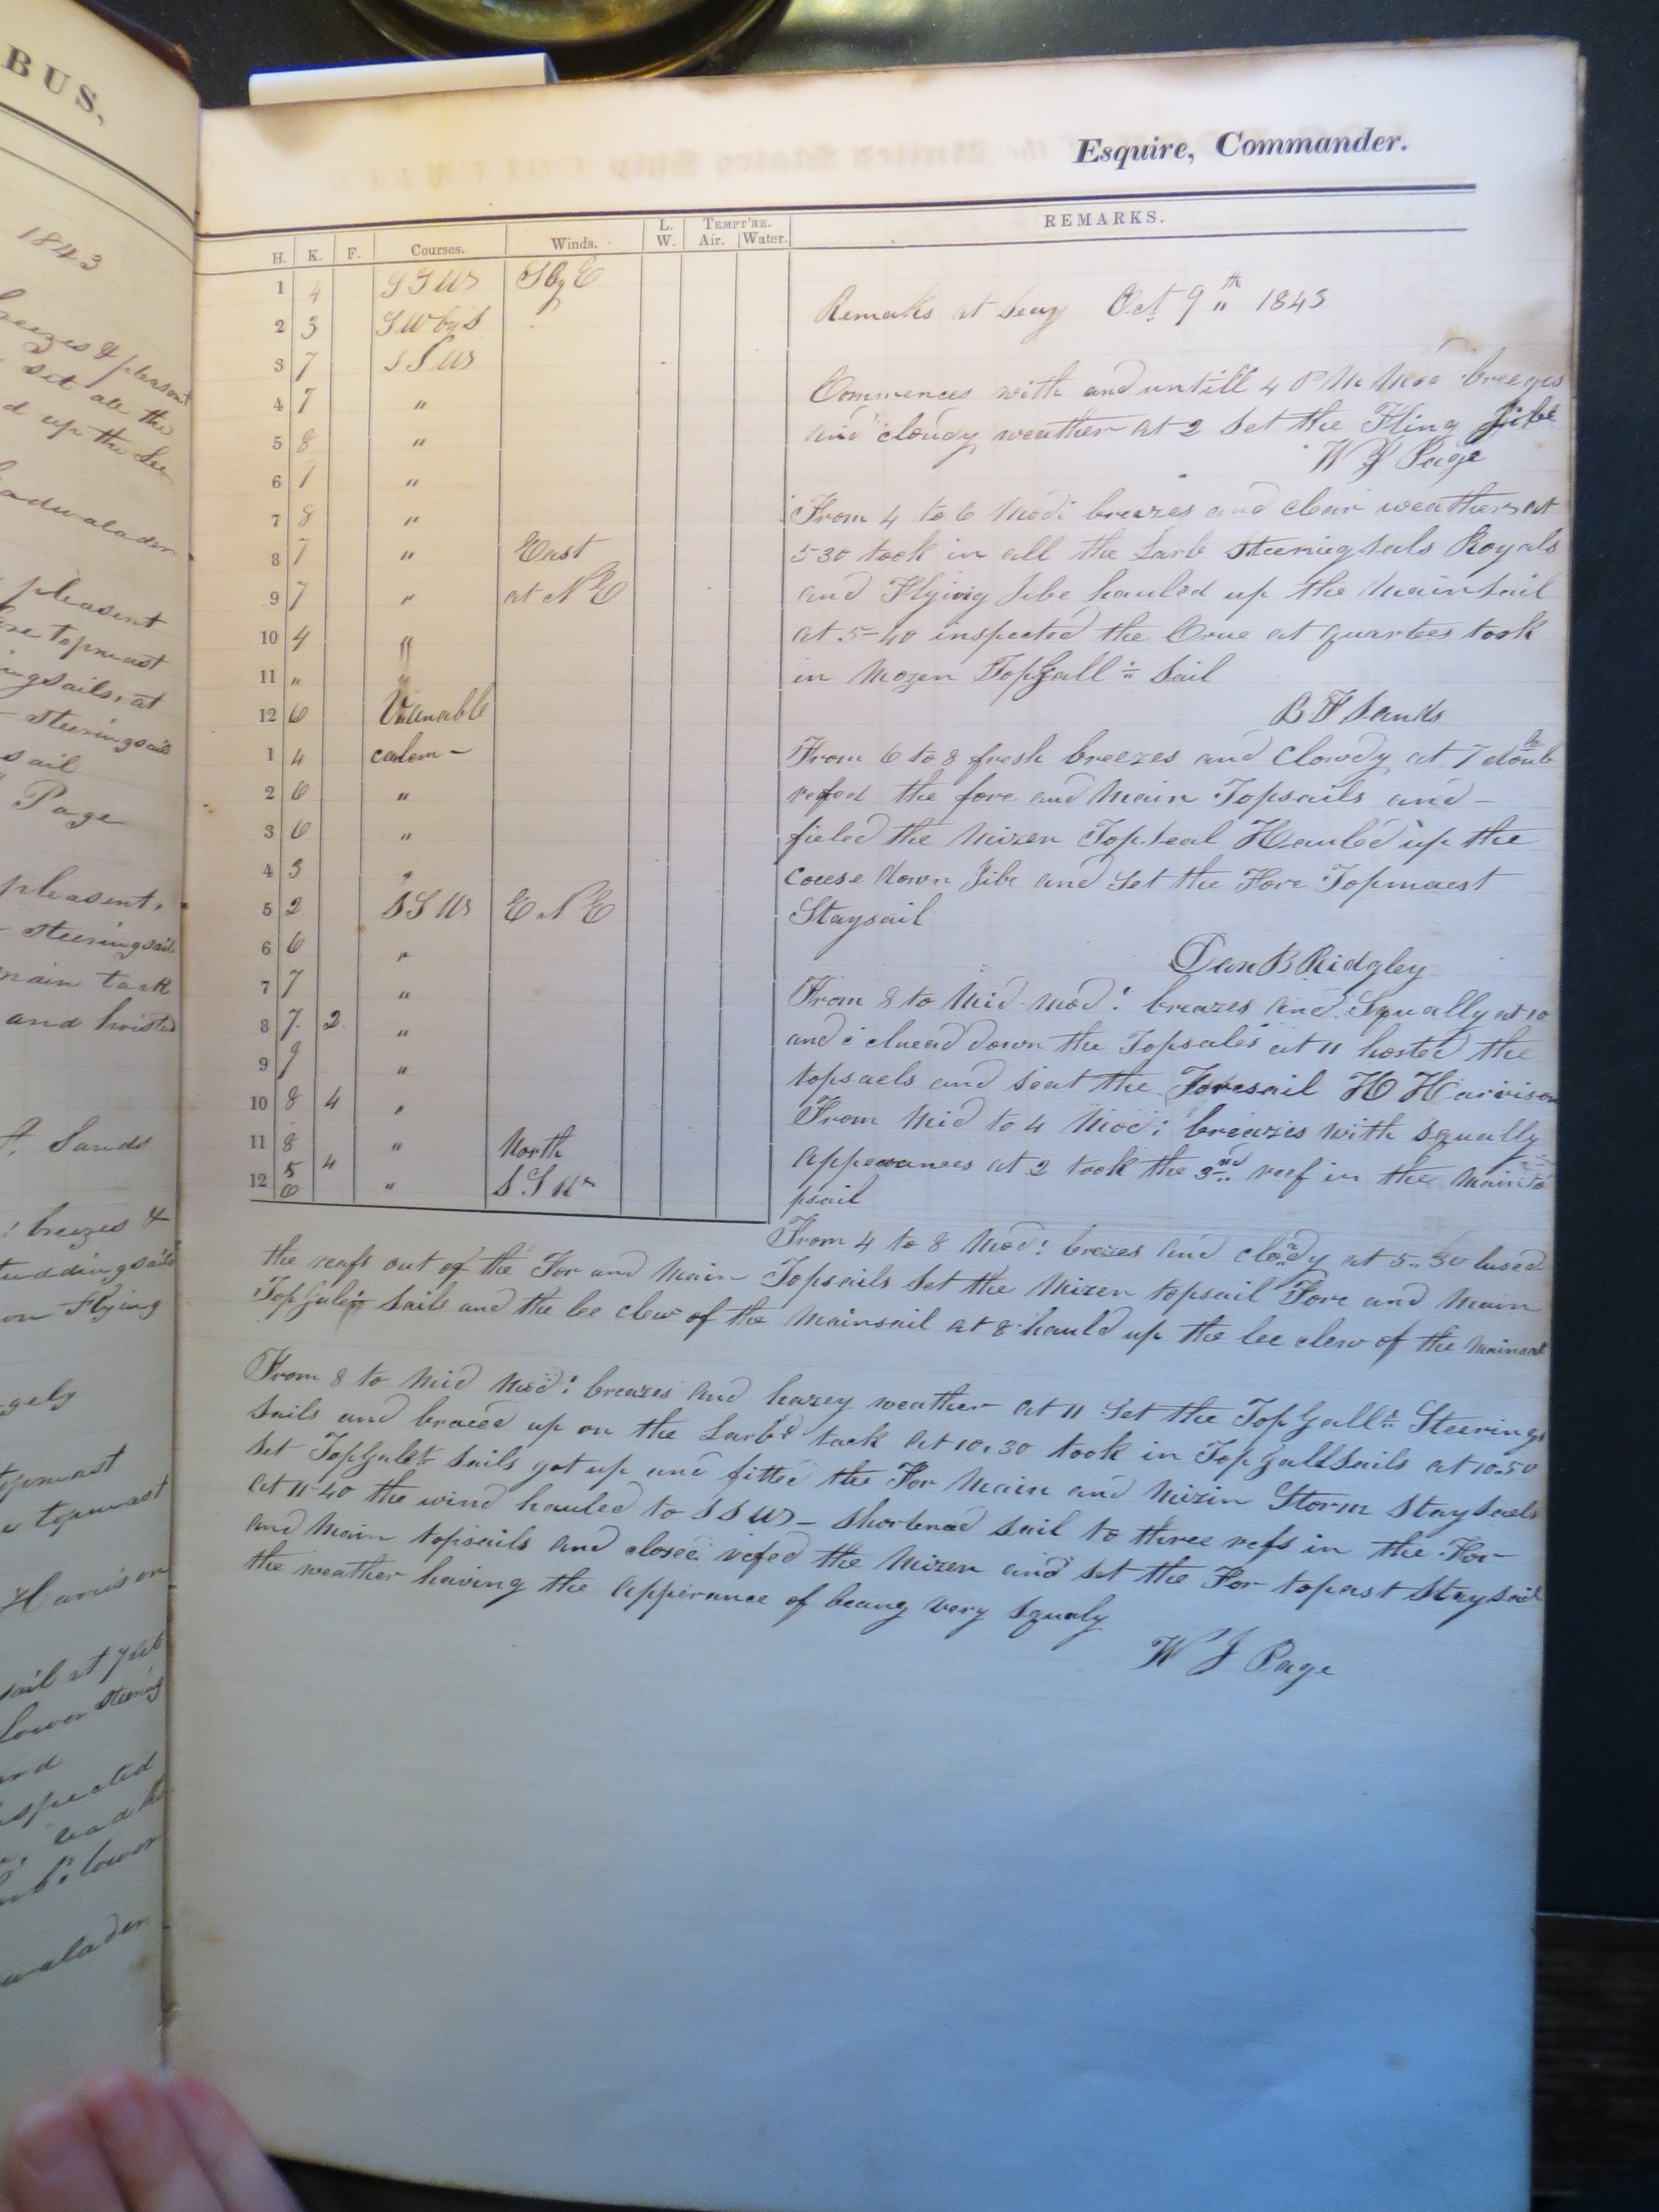 BUS,
1843
breezes & pleasant
set all the
d up the Lee
adwalader
pleasent
topmast
ingsails, at
steeringsail
sail
Page
pleasent,
steeringsail
main tack
and hoisted
Sands
breezes &
tuddingsails
Flying
gely
topmast
topmast
Harrison
sail at
lower steering
and
inspected
lower
walader
Esquire, Commander.
H. K. F. Courses. Winds. L. W. Tempt're. Air. Water. REMARKS.
1 4 SSW S by E
2 3 SW by S
3 7 SSW
4 7 "
5 8 "
6 7 "
7 8 "
8 7 " East
9 7 " at NE
10 4 "
11 " "
12 6 Variable
1 4 calem -
2 6 "
3 6 "
4 3 "
5 2 SSW ENE
6 6 "
7 7 "
8 7 2 "
9 9 "
10 8 4 "
11 8 " North
5 4
12 6 " S.SW
Remarks at Seay Oct 9th 1843
Commences with and untill 4 PM Mod breezes
and cloudy weather at 2 set the Fling Jibe
W J Page
From 4 to 6 Mod: breazes and clear weather at
5-30 took in all the Larb steeringsals Royals
and Flying Jibe hauled up the Mainsail
at 5-40 inspected the Crue at quartees took
in Mozen TopGall:t Sail
B F Sands
From 6 to 8 fresh breezes and Clowdy at 7 doubl
refed the fore and Main Topsails and -
fieled the Mizen Topseal Hauled up the
couse down Jibe and set the Fore Topmaest
Staysail
Dan B Ridgley
From 8 to Mid. mod: breazes and Squally at 10
and : cluead down the Topsales at 11 hosted the
topsaels and seat the Foresail H H Harrison
From Mid to 4 Mod: breazes with squally
appearances at 2 took the 3rd reef in the Mainto
psail
From 4 to 8 Mod: brezes and cloudy at 5.30 lused
the reafs out of the For and Main Topsails set the Mizen topsail Fore and Main
Topgalent Sails and the lee clew of the Mainsail at 8 hauld up the lee clew of the Mainsal
From 8 to Mid Mod: breazes and hazey weather at 11 set the TopGall:t Steerings
sails and braced up on the Larbd tack at 10.30 took in TopGallSails at 10.50
Set TopGalet Sails got up and fitted the For Main and Mizin Storm StaySaels
at 11-40 the wind hauled to SSW - Shortened sail to three refs in the For
and Main topsails and closed refed the Mizen and set the For topast Staysail
the weather having the apperance of beang very Squaly
W J Page